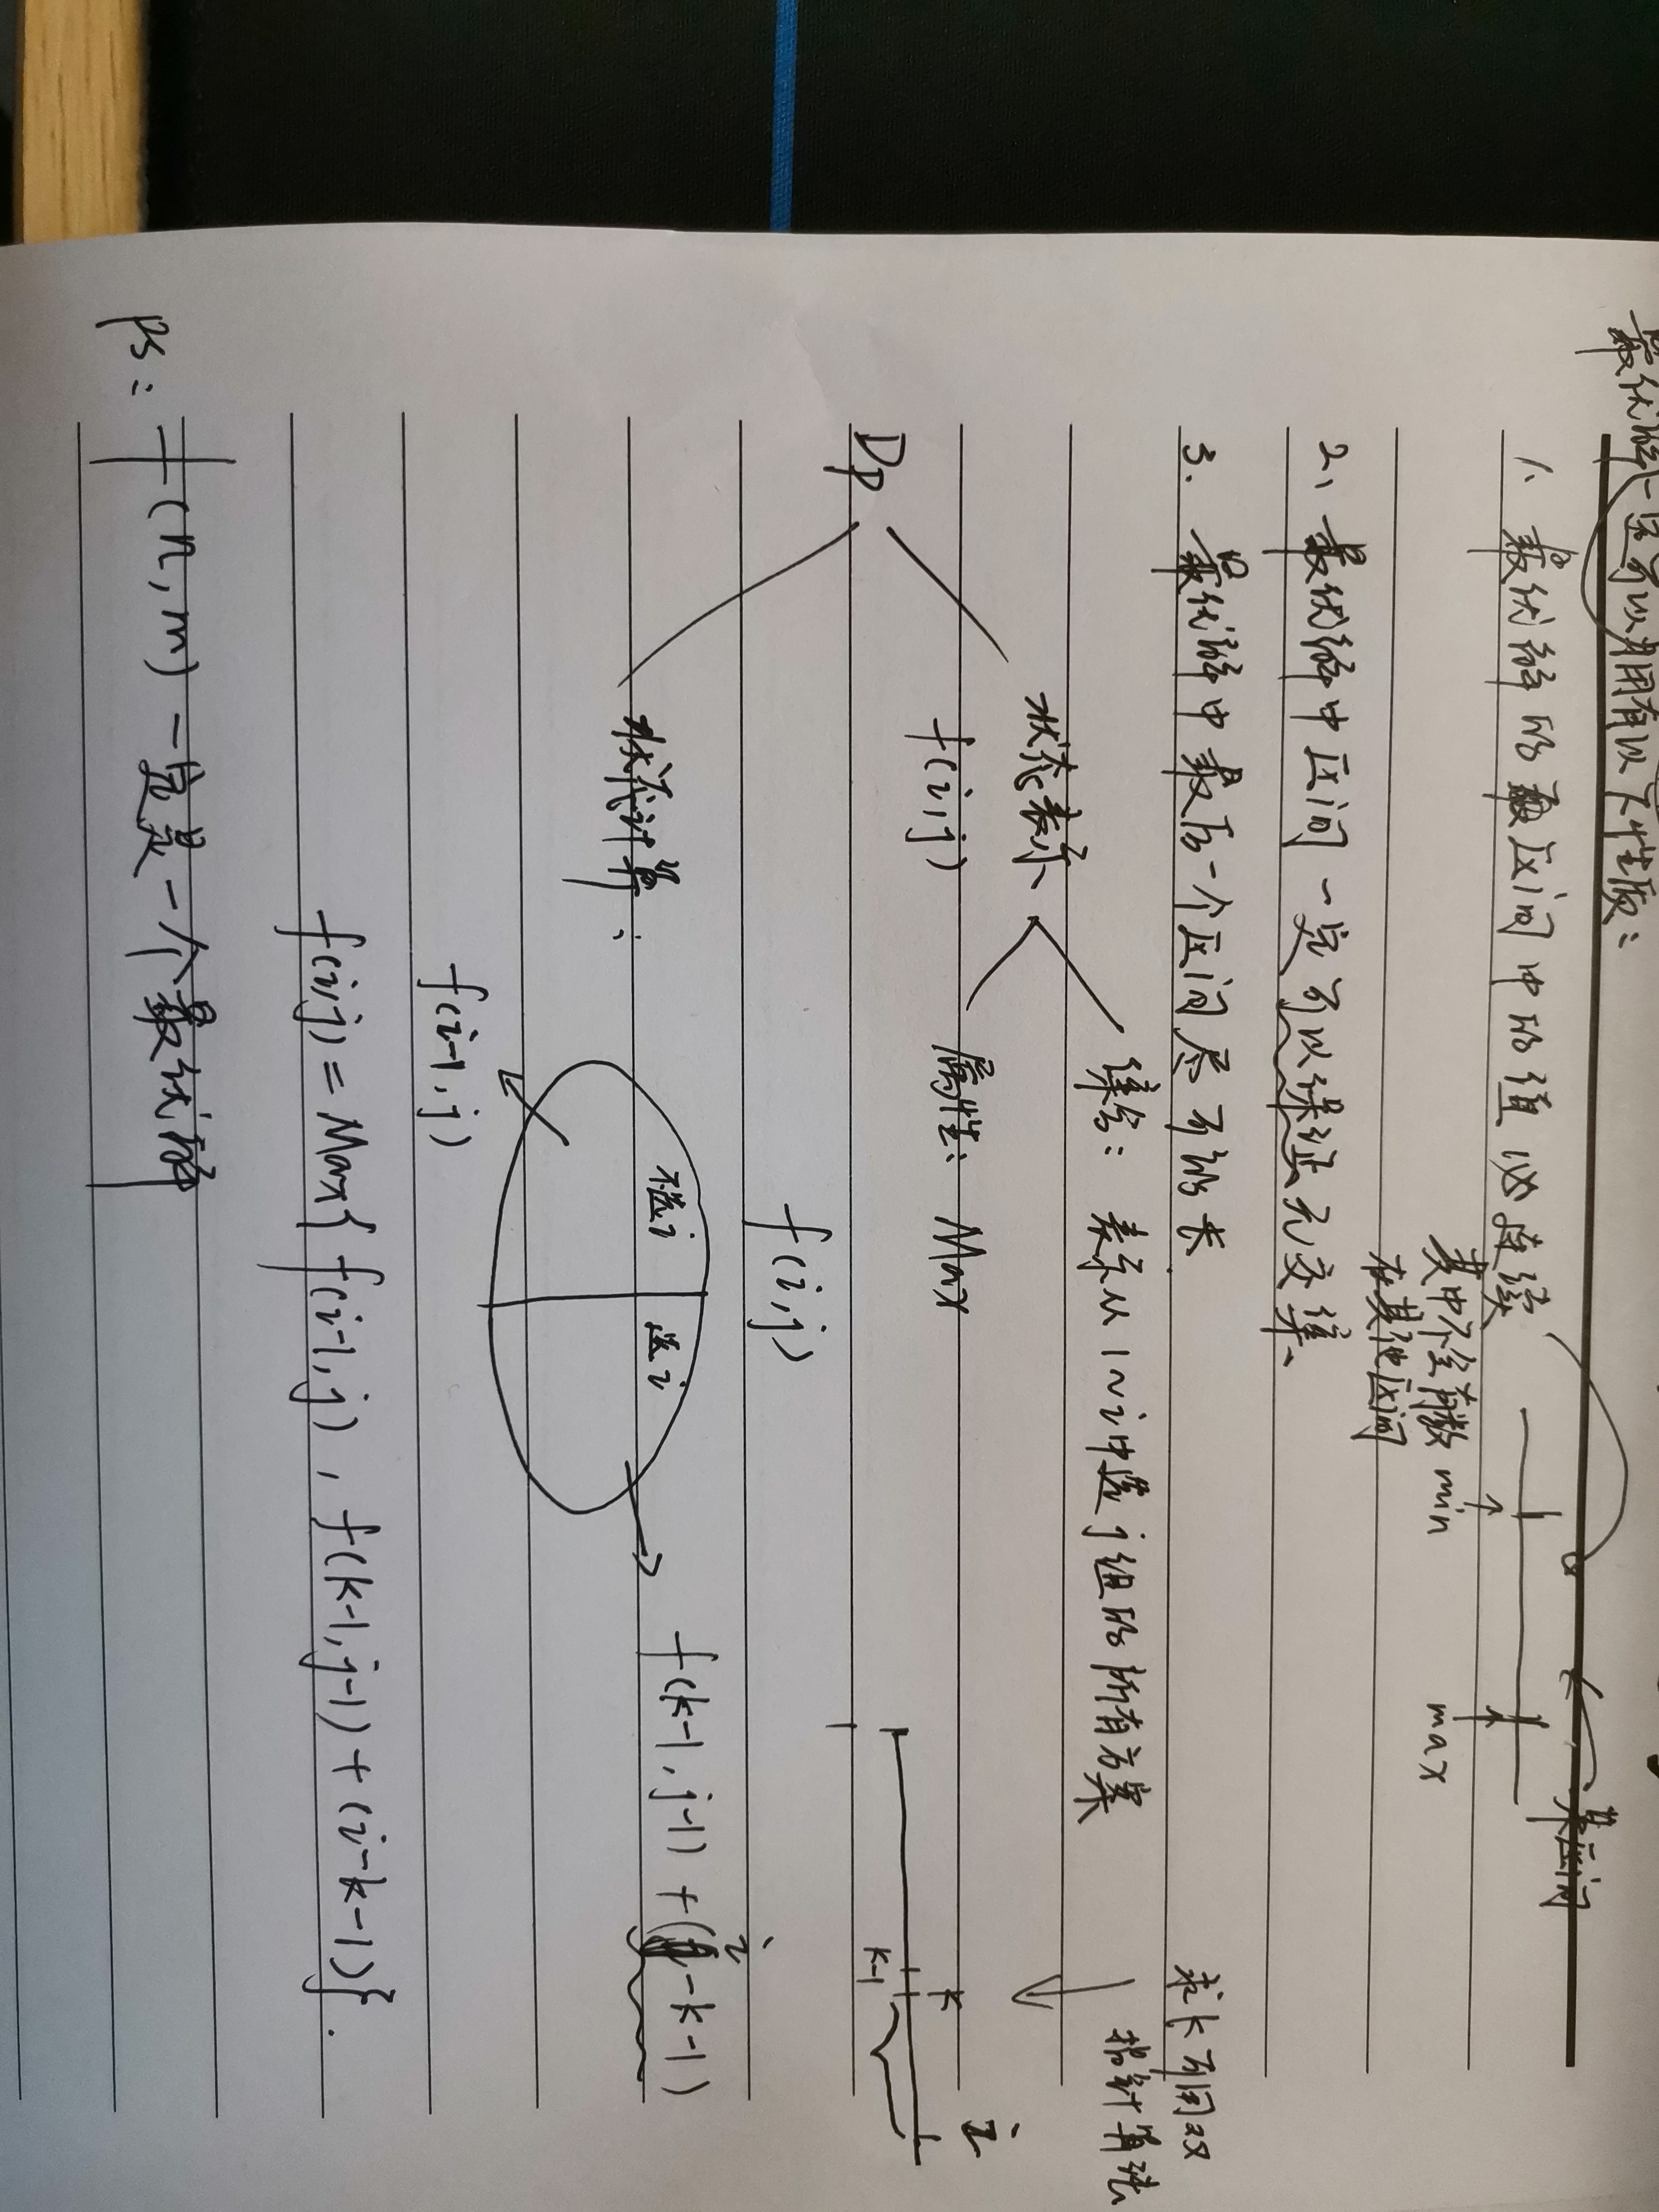 最优解一定可以拥有以下性质：
某区间
1、最优解的区间中的值必连续
其中不全有数
在其他区间
min
max
2、最优解中区间一定可以保证无交集、
3. 最优解中最后一个区间尽可能长.
求k可用双
指针算法
集合： 表示从1~i中选j组的所有方案
状态表示
f(i,j)
属性： Max
i
k
k-1
DP
f(i,j)
状态计算：
不选i
选i
f(k-1, j-1) + (i-k-1)
f(i-1, j)
f(i,j) = Max{ f(i-1, j) , f(k-1, j-1) + (i-k-1)}.
ps: f(n, m) 一定是一个最优解